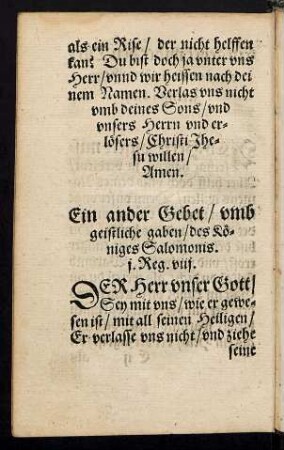 als ein Rise / der nicht helffen
kan? Du bist doch ja vnter vns
Herr / vnnd wir heissen nach dei
nem Namen. Verlas vns nicht
vmb deines Sons / vnd
vnsers Herrn vnd er-
lösers / Christi Jhe-
su willen /
Amen.
Ein ander Gebet / vmb
geistliche gaben / des Kö-
niges Salomonis.
j. Reg. viij.
DER Herr vnser Gott /
Sey mit vns / wie er gewe-
sen ist / mit all seinen Heiligen /
Er verlasse vns nicht / vnd ziehe
seine